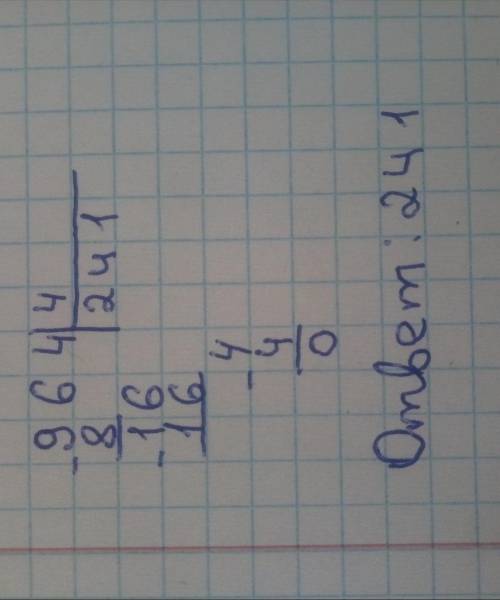 -964|4
8 |241
-16
16
-4
4
0
Ответ: 241